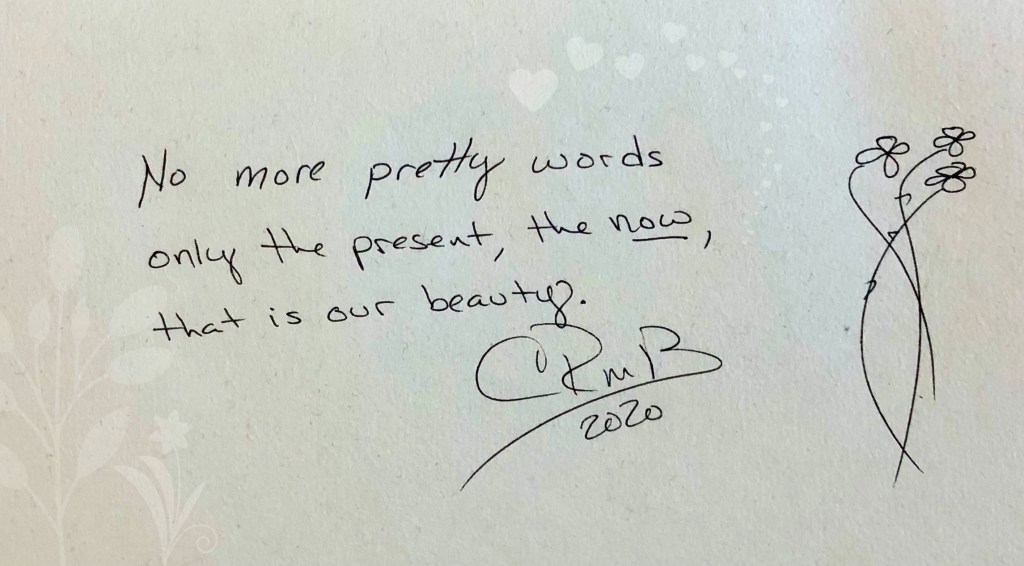 No more pretty words
only the present, the now,
that is our beauty.
CRmB
2020